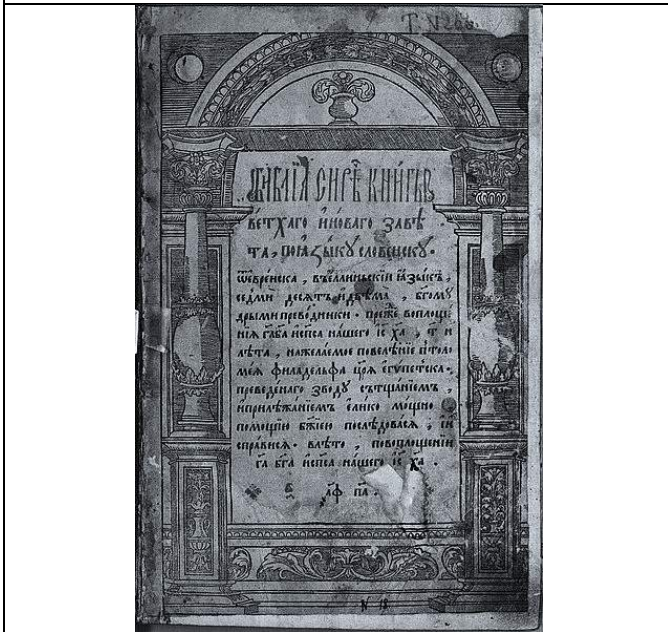 Т. N 266.
БИ́БЛЇѦ СИРѢ́Ч КНИ́ГЫ
ВЕ́ТХАГО И҆НО́ВАГО ЗАВѢ́
ТА, ПОꙖ҆ЗЫ́КУ СЛОВЕ́НСКУ.
ѿевре́йска, въе́ллиньскїй ꙗ҆зы́къ,
се́дмь десѧ́тъ и҆двѣ́ма, бг҃ому́
дрыми преводники. пре́жде воплоще́
нїѧ гд҃а бг҃а и҆сп҃са на́шего і҆с х҃а, т҃ и
лѣ́та, нажела́емое повелѣ́нїе пто́ло
ме́ѧ филаде́льфа цр҃ѧ є҆гѵ́петска.
преведе́наго зво́ду сътща́нїемъ,
и҆прилѣжа́нїемъ є҆ли́ко мо́щно
по́мощїю бж҃їею послѣ́довасѧ, и҆и
спра́висѧ. влѣ́то, повоплоще́нїи
гд҃а бг҃а и҆сп҃са на́шего і҆с х҃а.
҂а҃ф па҃.